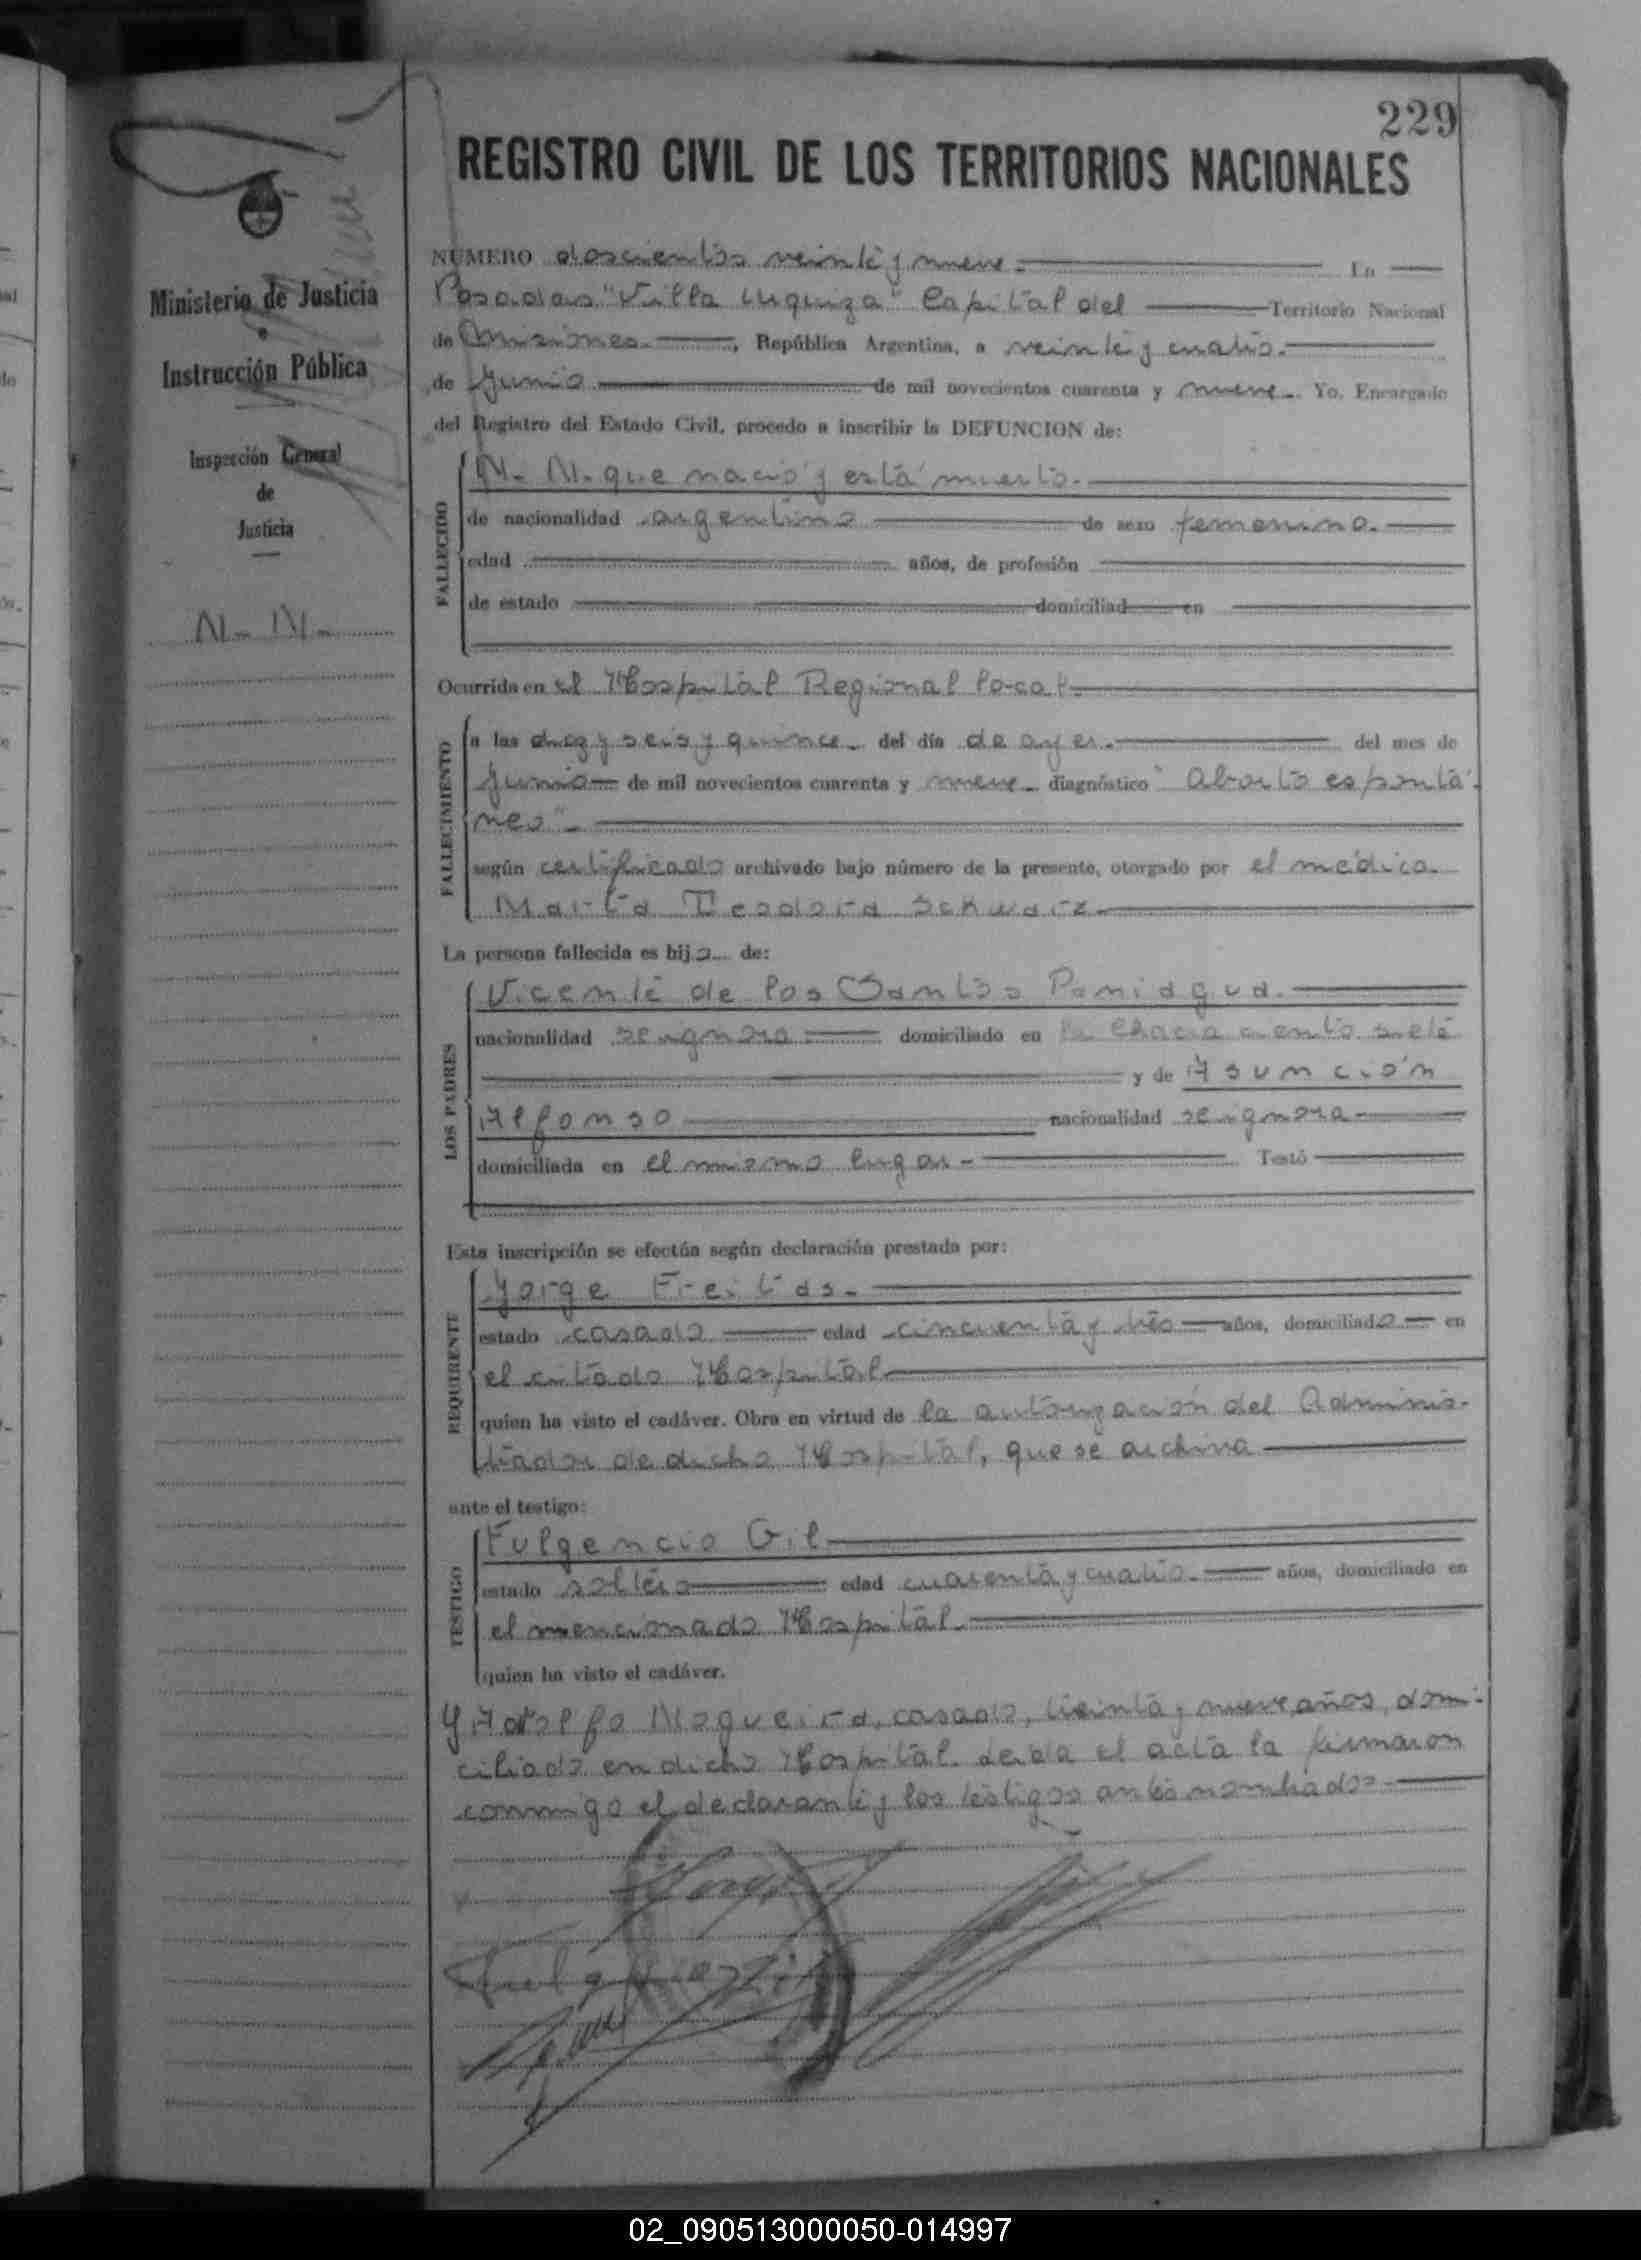 229
REGISTRO CIVIL DE LOS TERRITORIOS NACIONALES
Ministerio de Justicia
e
Instrucción Pública
Inspección General
de
Justicia
N. N.
NUMERO doscientos veinte y nueve. En
Posadas "Villa Urquiza" Capital del Territorio Nacional
de Misiones. , República Argentina, a veinte y cuatro.
de Junio de mil novecientos cuarenta y nueve. Yo, Encargado
del Registro del Estado Civil, procedo a inscribir la DEFUNCION de:
FALLECIDO
N. N. que nació y está muerto.
de nacionalidad argentino de sexo femenino.
edad años, de profesión
de estado domiciliad en
Ocurrida en el Hospital Regional local.
FALLECIMIENTO
a las diez y seis y quince. del día de ayer. del mes de
Junio de mil novecientos cuarenta y nueve diagnóstico "Aborto espontá-
neo".
según certificado archivado bajo número de la presente, otorgado por el médico.
Marta Teodora Schwarz.
La persona fallecida es hijo de:
LOS PADRES
Vicente de los Santos Paniagua.
nacionalidad se ignora domiciliado en la Chacra ciento siete
y de Asunción
Alfonso nacionalidad se ignora
domiciliada en el mismo lugar. Testó
Esta inscripción se efectúa según declaración prestada por:
REQUIRENTE
Jorge Freitas.
estado casado edad cincuenta y tres años, domiciliado en
el citado Hospital
quien ha visto el cadáver. Obra en virtud de la autorización del Adminis-
trador de dicho Hospital, que se archiva
ante el testigo:
TESTIGO
Fulgencio Gil
estado soltero edad cuarenta y cuatro. años, domiciliado en
el mencionado Hospital.
quien ha visto el cadáver.
Y Adolfo Nogueira, casado, treinta y nueve años, domi-
ciliado en dicho Hospital. Leida el acta la firmaron
conmigo el declarante y los testigos antes nombrados.
02_090513000050-014997